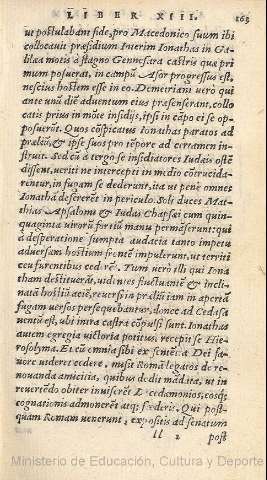 LIBER XIII.
163
ut postulabant fide, pro Macedonico suum ibi
collocauit præsidium Interim Ionathas in Ga-
lilæa motis à stagno Gennesara castris quæ pri
mum posuerat, in campũ Asor progressus est,
nescius hostem esse in eo. Demetriani verò qui
ante unũ diẽ aduentum eius præsenserant, collo
catis prius in mõte insidijs, ipsi in cãpo ei se op-
posuerũt. Quos cõspicatus Ionathas paratos ad
præliũ, & ipse suos pro tẽpore ad certamen in-
struit. Sed cũ à tergo se insidiatores Iudæis ostẽ
dissent, veriti ne intercepti in medio cõtrucida-
rentur, in fugam se dederunt, ita ut penè omnes
Ionathã desererẽt in periculo. Soli duces Mat-
thias Apsalomi & Iudas Chapsæi cum quin-
quaginta virorũ fortiũ manu permãserunt: qui
à desperatione sumpta audacia tanto impetu
aduersam hostium frontẽ impulerunt, ut territi
ceu furentibus cederẽt. Tum verò illi qui Iona
tham destituerãt, uidentes fluctuantẽ & incli-
natã hostiũ aciẽ, reuersi in præliũ iam in apertã
fugam versos persequebantur, donec ad Cedasa
ventũ est, ubi intra castra cõpulsi sunt. Ionathas
autem egregia victoria potitus, recepit se Hie-
rosolyma. Et cũ omnia sibi ex sentẽtia Dei fa-
uore videret cedere, misit Romã legatos de re-
nouanda amicitia, quibus dedit mãdata, ut in
reuertẽdo obiter inuiserẽt Lacedæmonios, eosq;
cognationis admonerẽt atq; fœderis. Qui post-
quam Romam venerunt, expositis ad senatum
ll 2 post
Ministerio de Educación, Cultura y Deporte